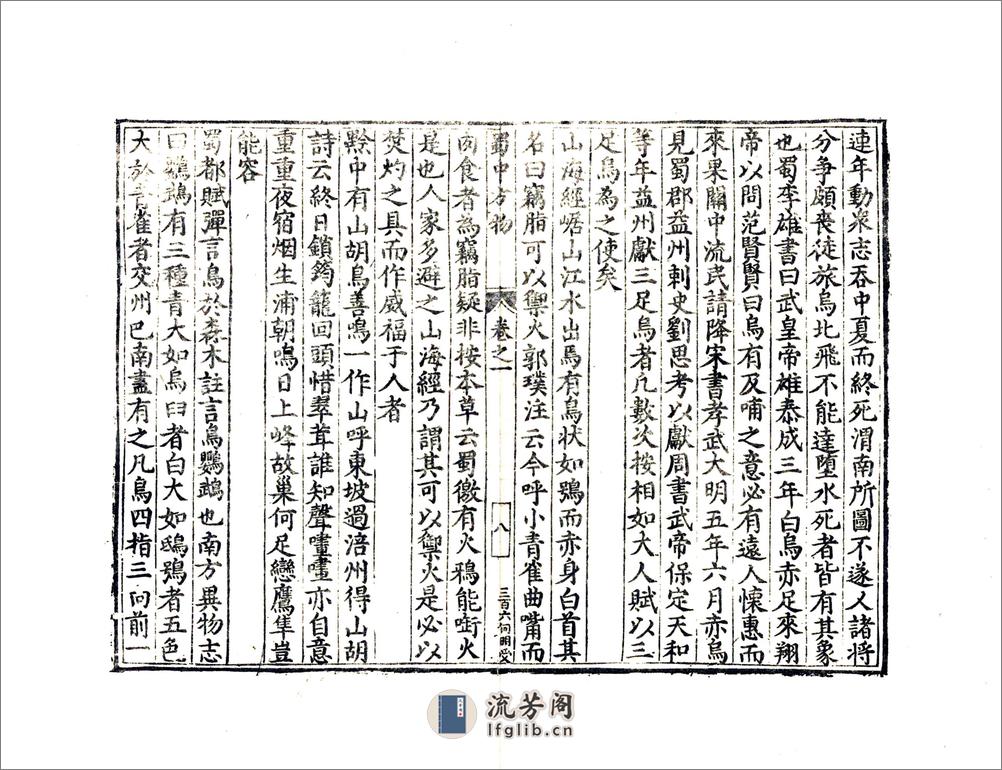 連年動衆志吞中夏而終死渭南所圖不遂人諸將
分爭頗喪徒旅烏北飛不能達墮水死者皆有其象
也蜀李雄書曰武皇帝雄泰成三年白烏赤足來翔
帝以問范賢賢曰烏有反哺之意必有遠人懷惠而
來果關中流民請降宋書孝武大明五年六月赤烏
見蜀郡益州刺史劉思考以獻周書武帝保定天和
等年益州獻三足烏者凡數次按相如大人賦以三
足烏為之使矣
山海經崌山江水出焉有鳥狀如鴞而赤身白首其
名曰竊脂可以禦火郭璞注云今呼小青雀曲嘴而
蜀中方物
卷之一
八
三百六何明受
肉食者為竊脂疑非按本草云蜀徼有火鴉能啣火
是也人家多避之山海經乃謂其可以禦火是必以
焚灼之具而作威福于人者
黔中有山胡鳥善鳴一作山呼東坡過涪州得山胡
詩云終日鎖筠籠回頭惜翠茸誰知聲㗲㗲亦自意
重重夜宿烟生浦朝鳴日上峰故巢何足戀鷹隼豈
能容
蜀都賦彈言鳥於森木註言鳥鸚鵡也南方異物志
曰鸚鵡有三種青大如烏臼者白大如鴟鴞者五色
大於青雀者交州巴南盡有之凡鳥四指三向前一
流芳阁
lfglib.cn